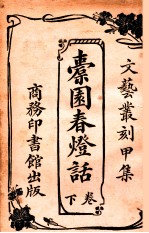 文藝叢刻甲集
橐園春燈話
卷下
商務印書館出版